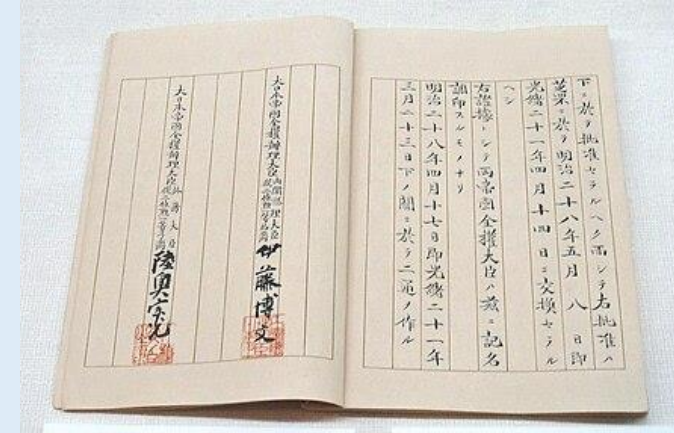 下ニ於テ批准セラルヘク而シテ右批准ハ
芝罘ニ於テ明治二十八年五月八日即
光緒二十一年四月十四日ニ交換セラル
ヘシ
右證據トシテ両帝國全權大臣ハ茲ニ記名
調印スルモノナリ
明治二十八年四月十七日即光緒二十一年
三月二十三日下ノ關ニ於テ二通ヲ作ル
大日本帝國全權辦理大臣内閣總理大臣
伊藤博文
大日本帝國全權辦理大臣外務大臣
陸奥宗光